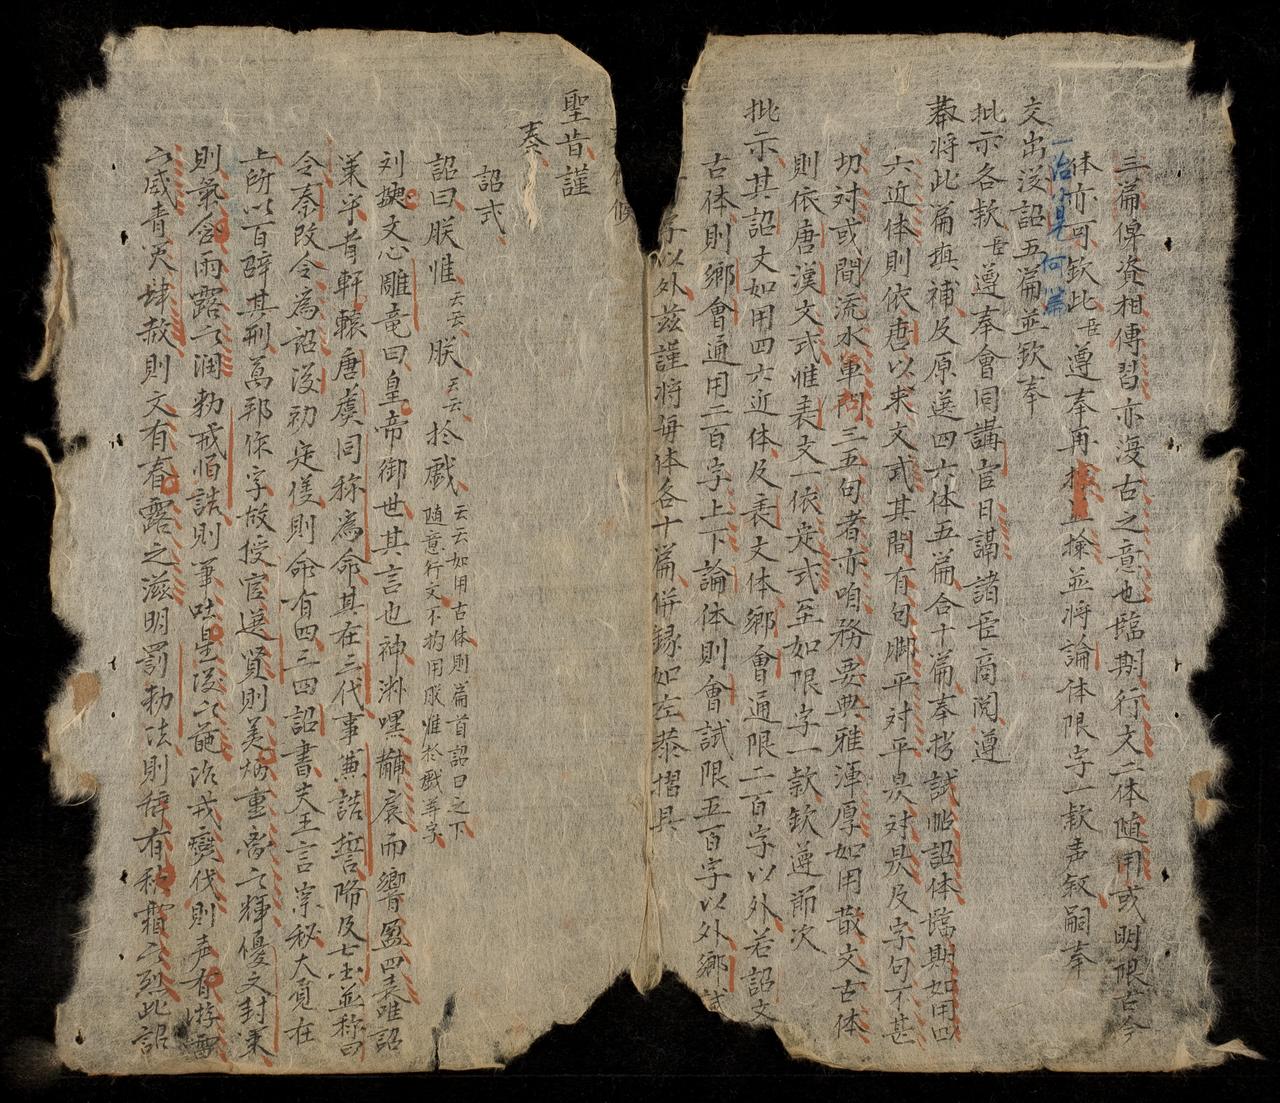 三篇俾資相傳習亦復古之意也臨期行文二体随用或明限古今
体亦可欽此臣遵奉再撿並將論体限字一款声叙嗣奉
一治見何篇
交出没詔五篇並欽奉
批示各款臣遵奉會同講官日講諸臣商閲遵
將此篇填補及原選四六体五篇合十篇奉拷試帖詔体臨期如用四
六近体則依唐以来文式其間有句脚平対平昃対昃及字句不甚
切対或間流水单閗三五句者亦咱務要典雅渾厚如用散文古体
則依唐漢文式惟表文一依定式至如限字一款欽遵節次
批示其詔文如用四六近体及表文体鄉會通限二百字以外若詔文
古体則鄉會通用二百字上下論体則會試限五百字以外鄉試
字以外玆謹將每体各十篇併録如左恭摺具
候
聖旨謹
奏
詔式
詔曰朕惟云云朕云云於戲云云如用古体則篇首詔曰之下
随意行文不拘用朕惟於戲等字
刘勰文心雕竜曰皇帝御世其言也神渊嘿黼扆而響盈四表唯詔
策乎昔軒轅唐虞同称為命其在三代事兼誥誓降及七囯並称曰
令秦改令為詔漢初定儀則命有四三四詔書夫王言崇秘大覌在
上所以百辟其刑萬邦作孚故授官選賢則美炳重离之輝優文封策
則氣含雨露之润勅戒恒誥則筆吐星漢之華治戎燮伐則声有洊雷
之威眚災肆赦則文有春露之滋明罰勅法則辞有秋霜之烈此詔